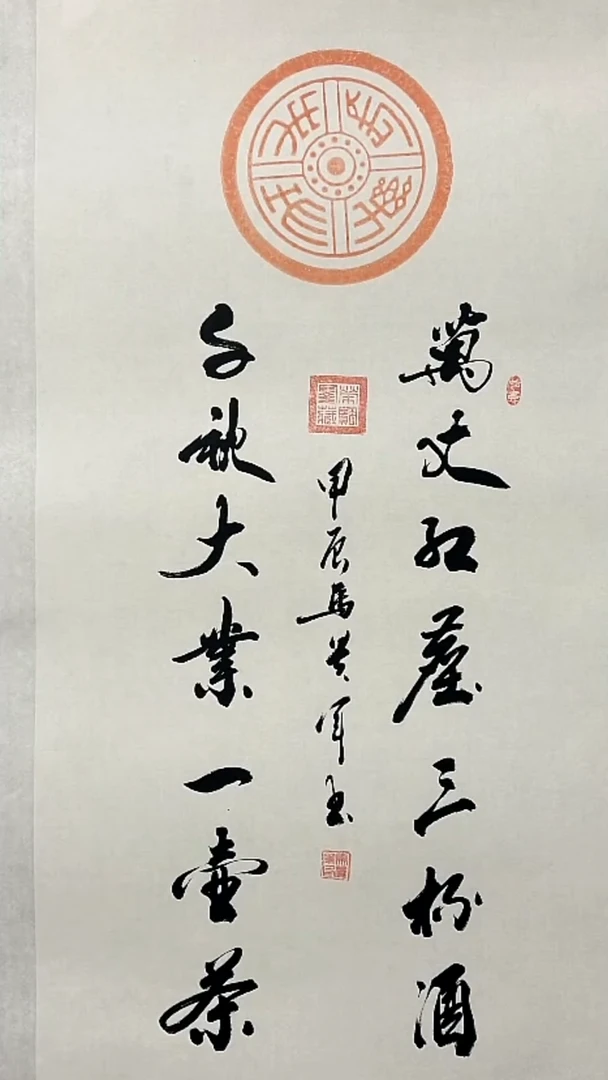 萬丈紅塵三杯酒
千秋大業一壺茶
甲辰馬英軍書